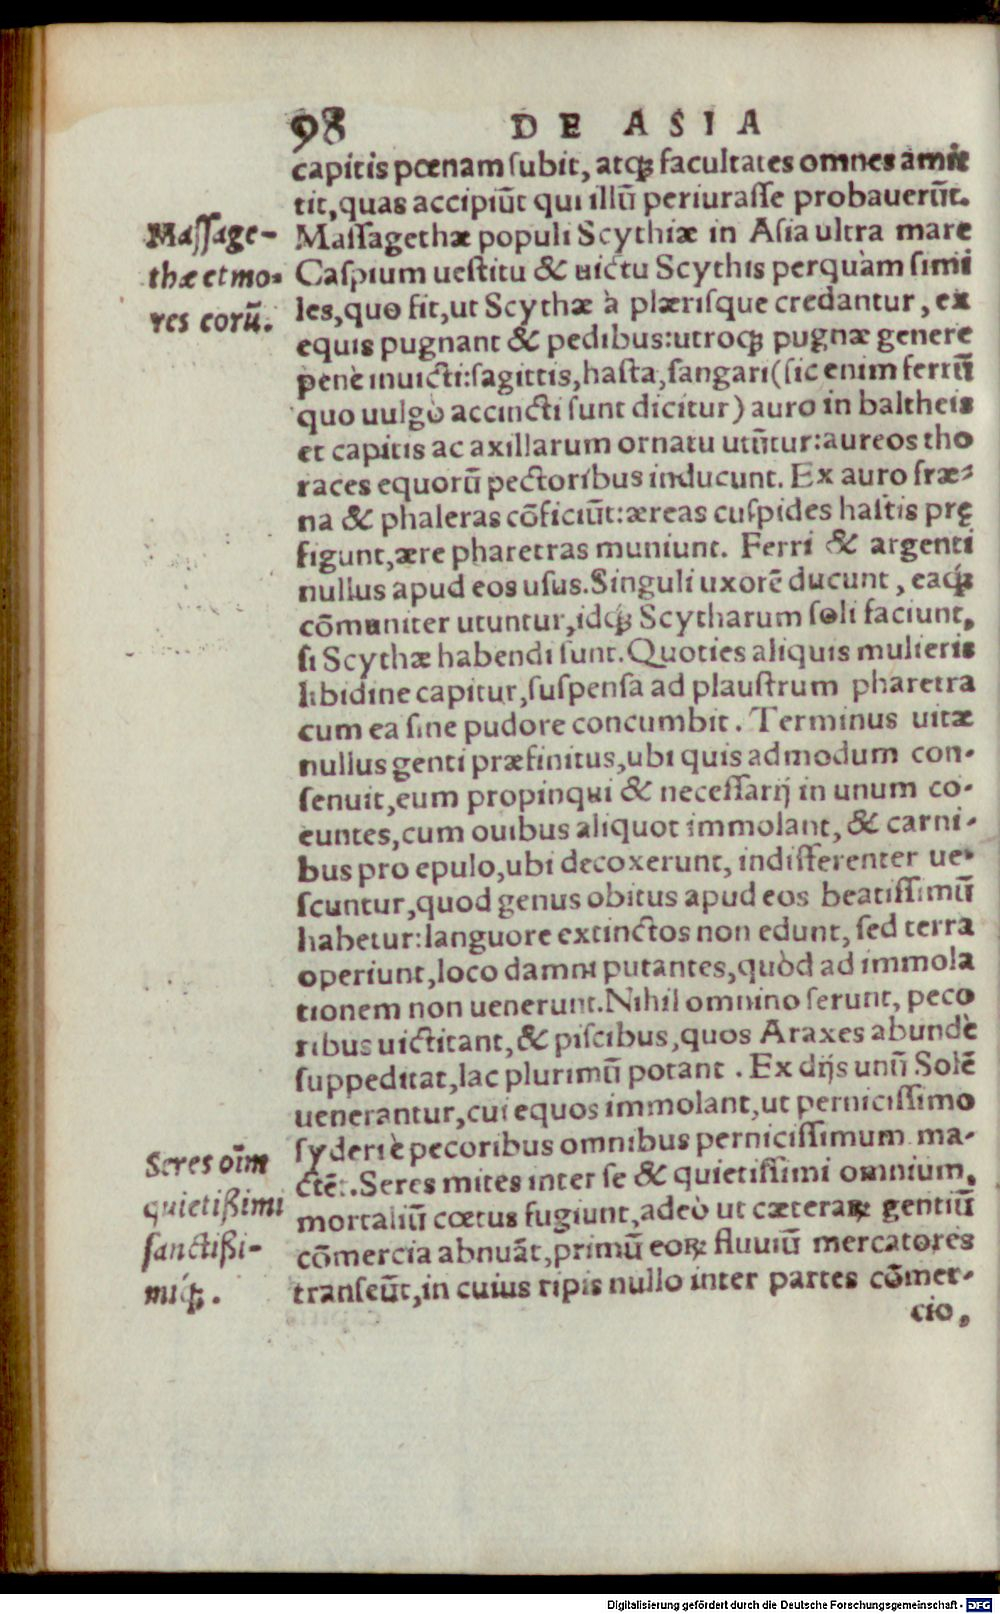 98 DE ASIA
capitis pœnam ſubit, atqꝫ facultates omnes amit
tit, quas accipiũt qui illũ periuraſſe probauerũt.
Maſſagethæ populi Scythiæ in Aſia ultra mare
Caſpium ueſtitu & uictu Scythis perquàm ſimi
les, quo fit, ut Scythæ à plæriſque credantur, ex
equis pugnant & pedibus: utroqꝫ pugnæ genere
penè inuicti: ſagittis, haſta, ſangari (ſic enim ferrũ
quo uulgò accincti ſunt dicitur) auro in baltheis
et capitis ac axillarum ornatu utũtur: aureos tho
races equorũ pectoribus inducunt. Ex auro fræ-
na & phaleras cõficiũt: æreas cuſpides haſtis prę
figunt, ære pharetras muniunt. Ferri & argenti
nullus apud eos uſus. Singuli uxorẽ ducunt, eaqꝫ́
cõmuniter utuntur, idqꝫ́ Scytharum ſoli faciunt,
ſi Scythæ habendi ſunt. Quoties aliquis mulieris
libidine capitur, ſuſpenſa ad plauſtrum pharetra
cum ea ſine pudore concumbit. Terminus uitæ
nullus genti præfinitus, ubi quis admodum con-
ſenuit, eum propinqui & neceſſarij in unum co-
euntes, cum ouibus aliquot immolant, & carni-
bus pro epulo, ubi decoxerunt, indifferenter ue-
ſcuntur, quod genus obitus apud eos beatiſſimũ
habetur: languore extinctos non edunt, ſed terra
operiunt, loco damni putantes, quòd ad immola
tionem non uenerunt. Nihil omnino ſerunt, peco
ribus uictitant, & piſcibus, quos Araxes abundè
ſuppeditat, lac plurimũ potant. Ex dijs unũ Solẽ
uenerantur, cui equos immolant, ut perniciſſimo
ſyderi è pecoribus omnibus perniciſſimum ma-
ctẽt. Seres mites inter ſe & quietiſſimi omnium,
mortaliũ cœtus fugiunt, adeò ut cæteraꝝ gentiũ
cõmercia abnuãt, primũ eoꝝ fluuiũ mercatores
tranſeũt, in cuius ripis nullo inter partes cõmer-
cio,
Maſſage-
thæ et mo-
res eorũ.
Seres oĩm
quietißimi
ſanctißi-
miqꝫ́.
Digitalisierung gefördert durch die Deutsche Forschungsgemeinschaft - DFG